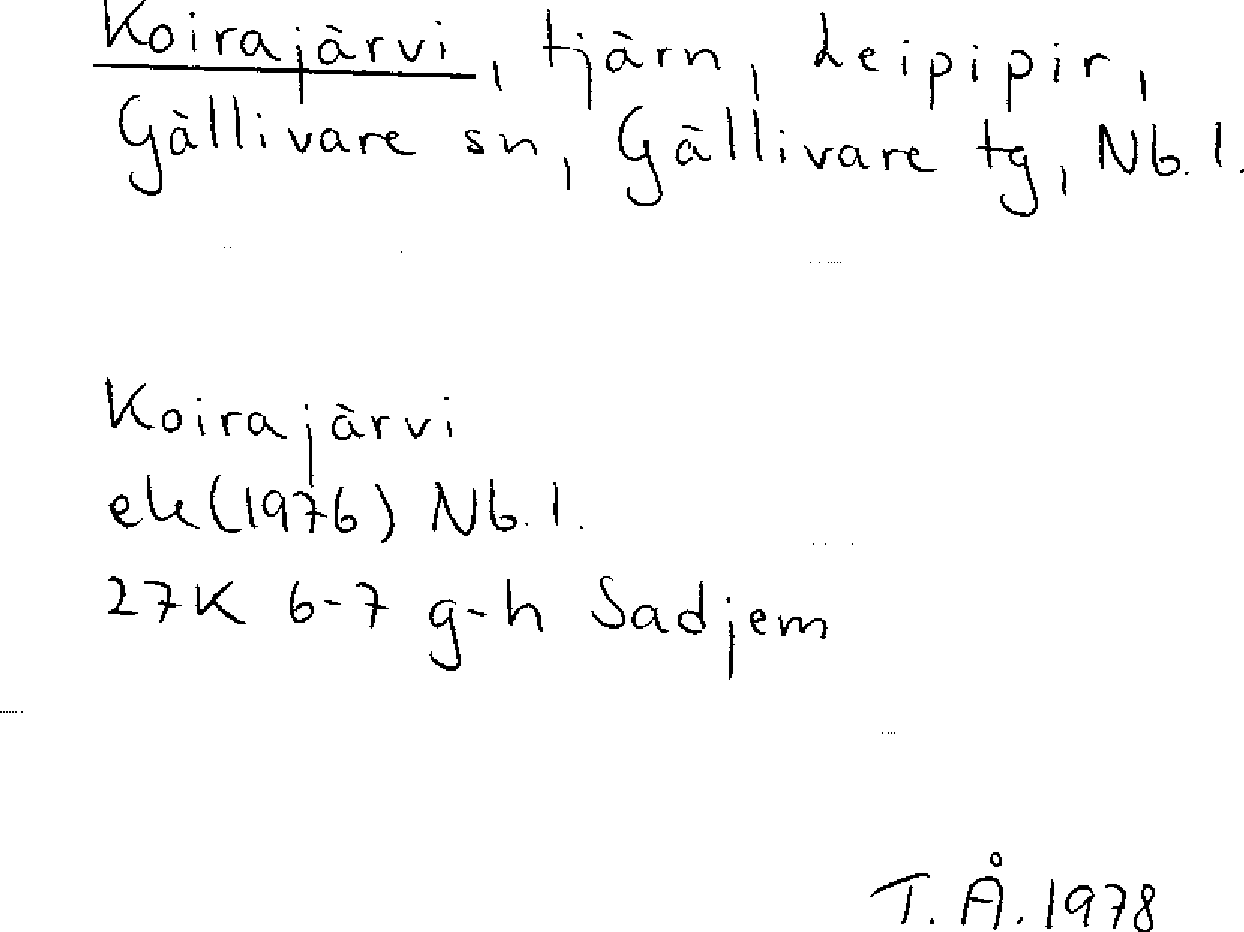 Koirajärvi, tjärn, Leipipir,
Gällivare sn, Gällivare tg, Nb. l.
Koirajärvi
ek (1976) Nb. l.
27K 6-7 g-h Sadjem
T. Å. 1978